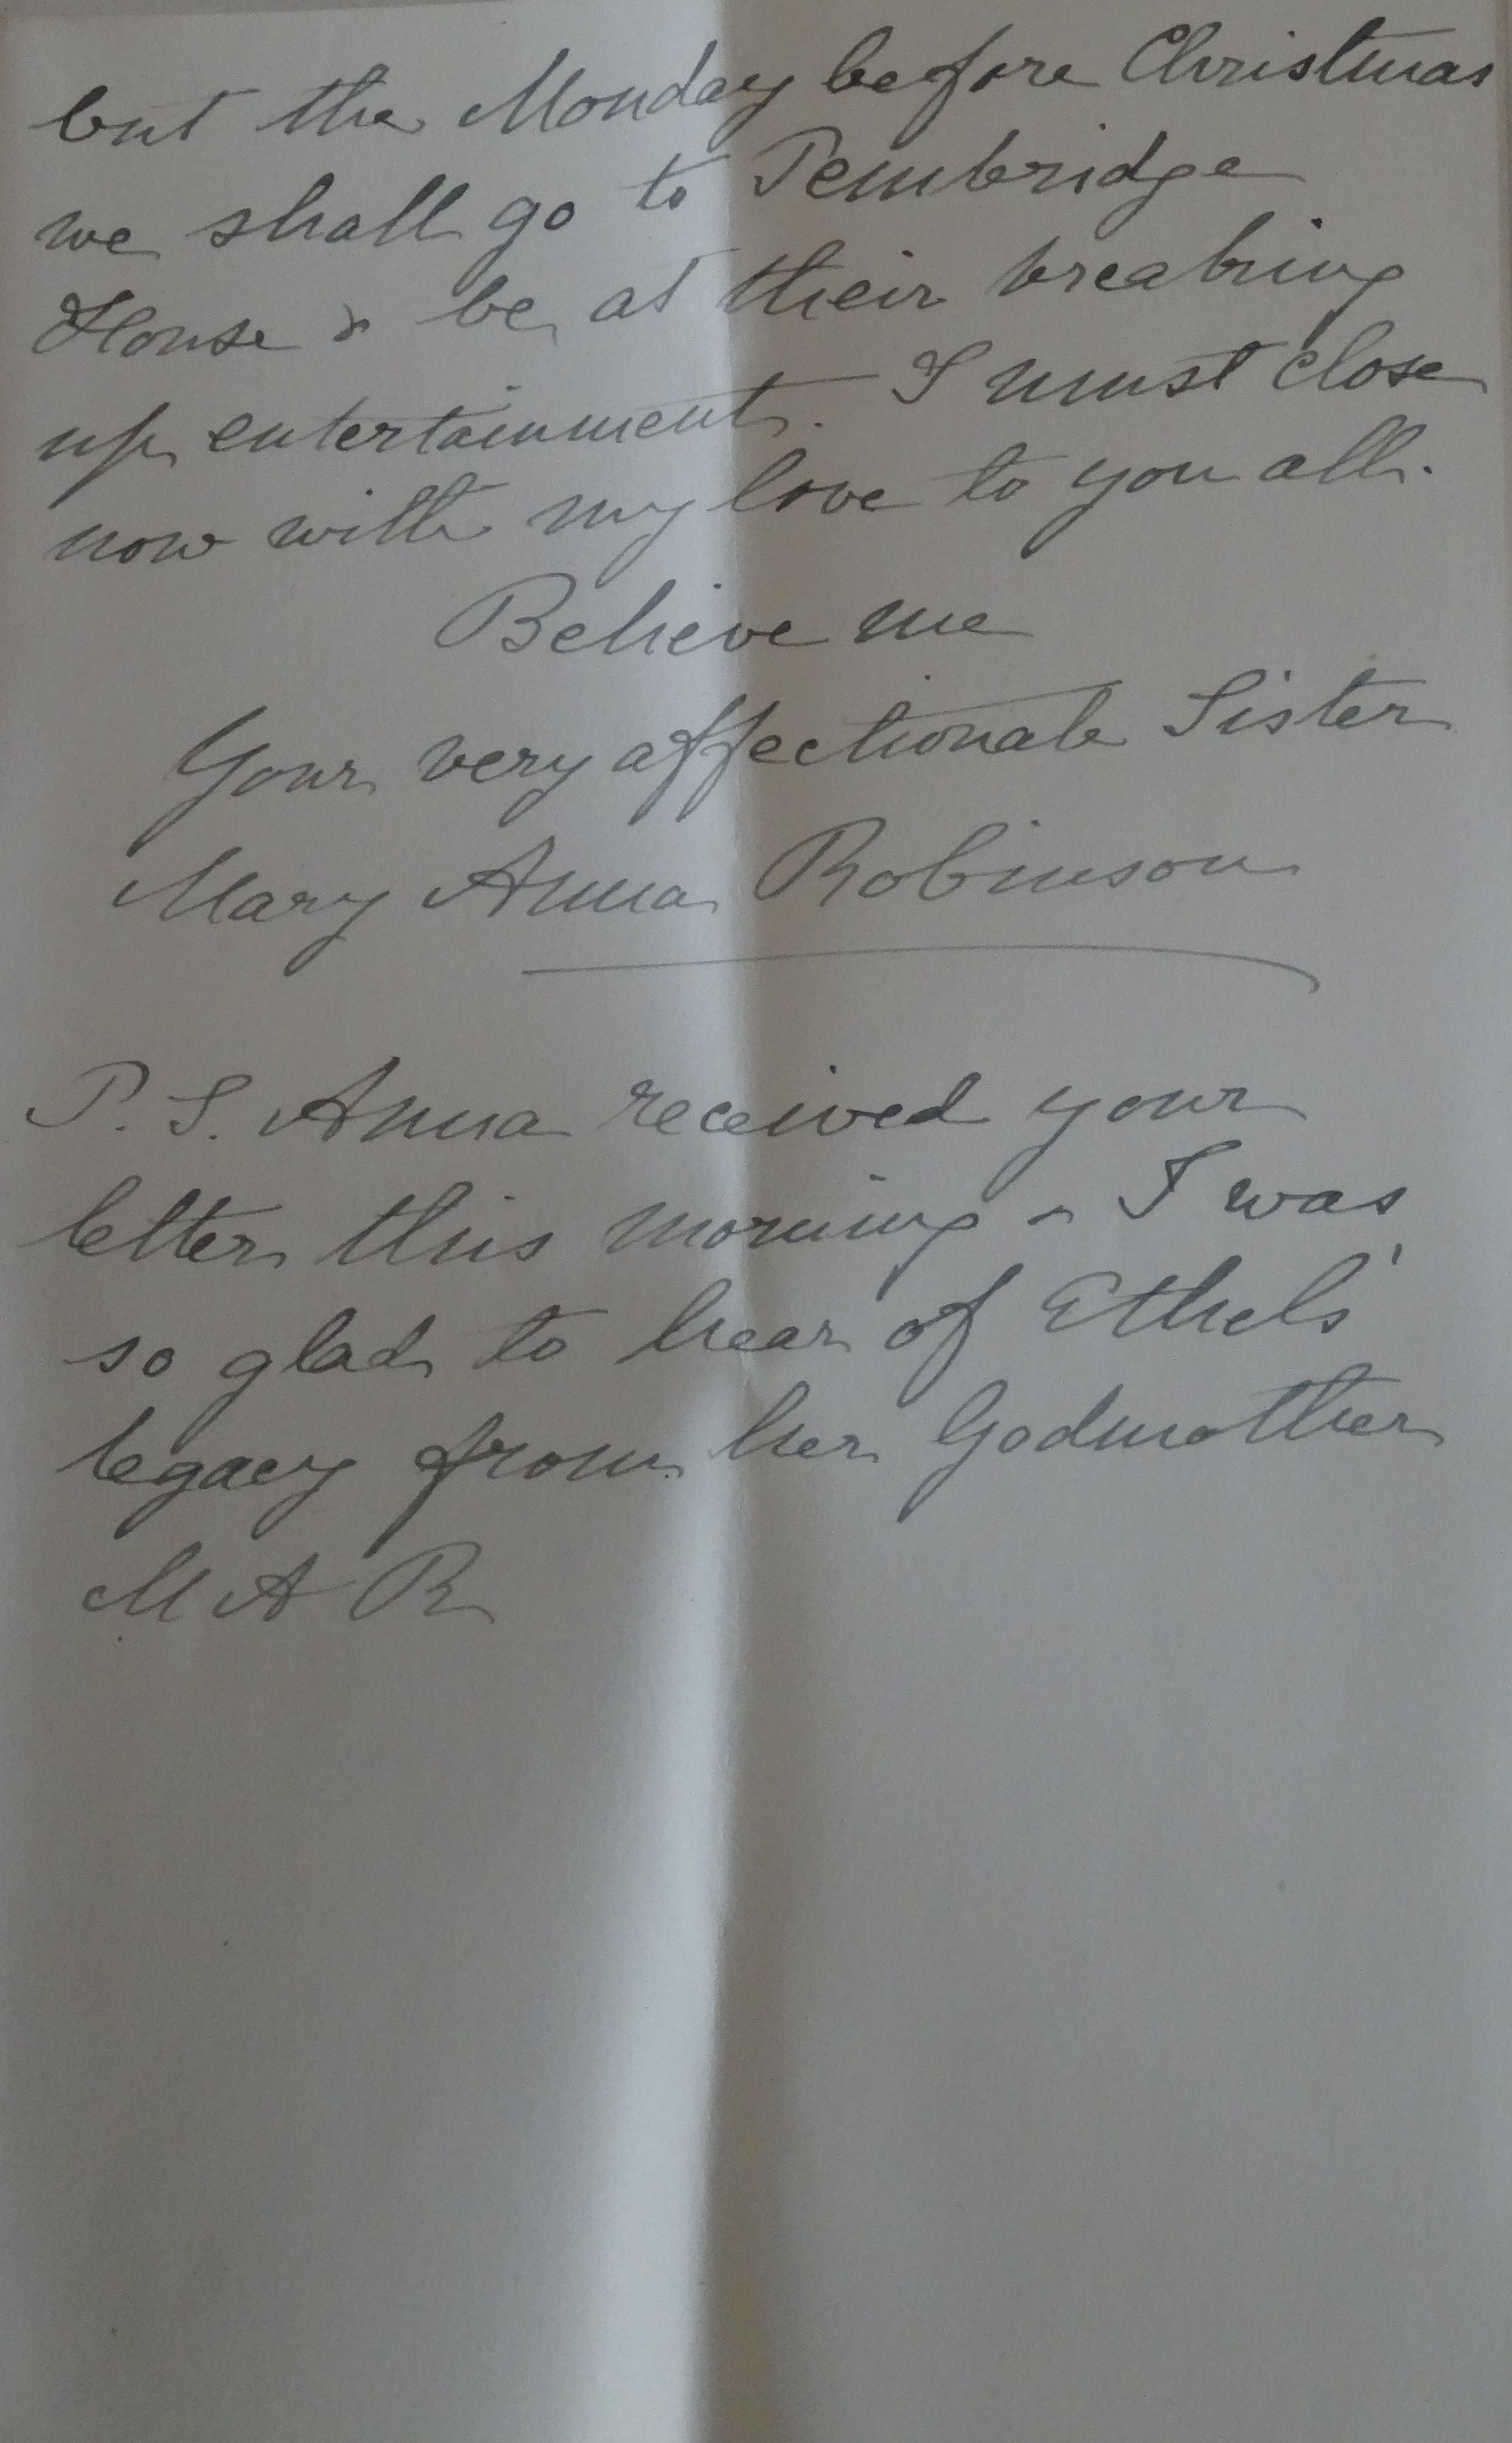 but the Monday before Christmas
we shall go to Pembridge
House & be at their breaking
up entertainment. I must close
now with my love to you all.
Believe me
Your very affectionate Sister
Mary Anna Robinson
P. S. Anna received your
letter this morning - I was
so glad to hear of Ethel's
legacy from her Godmother
M A R